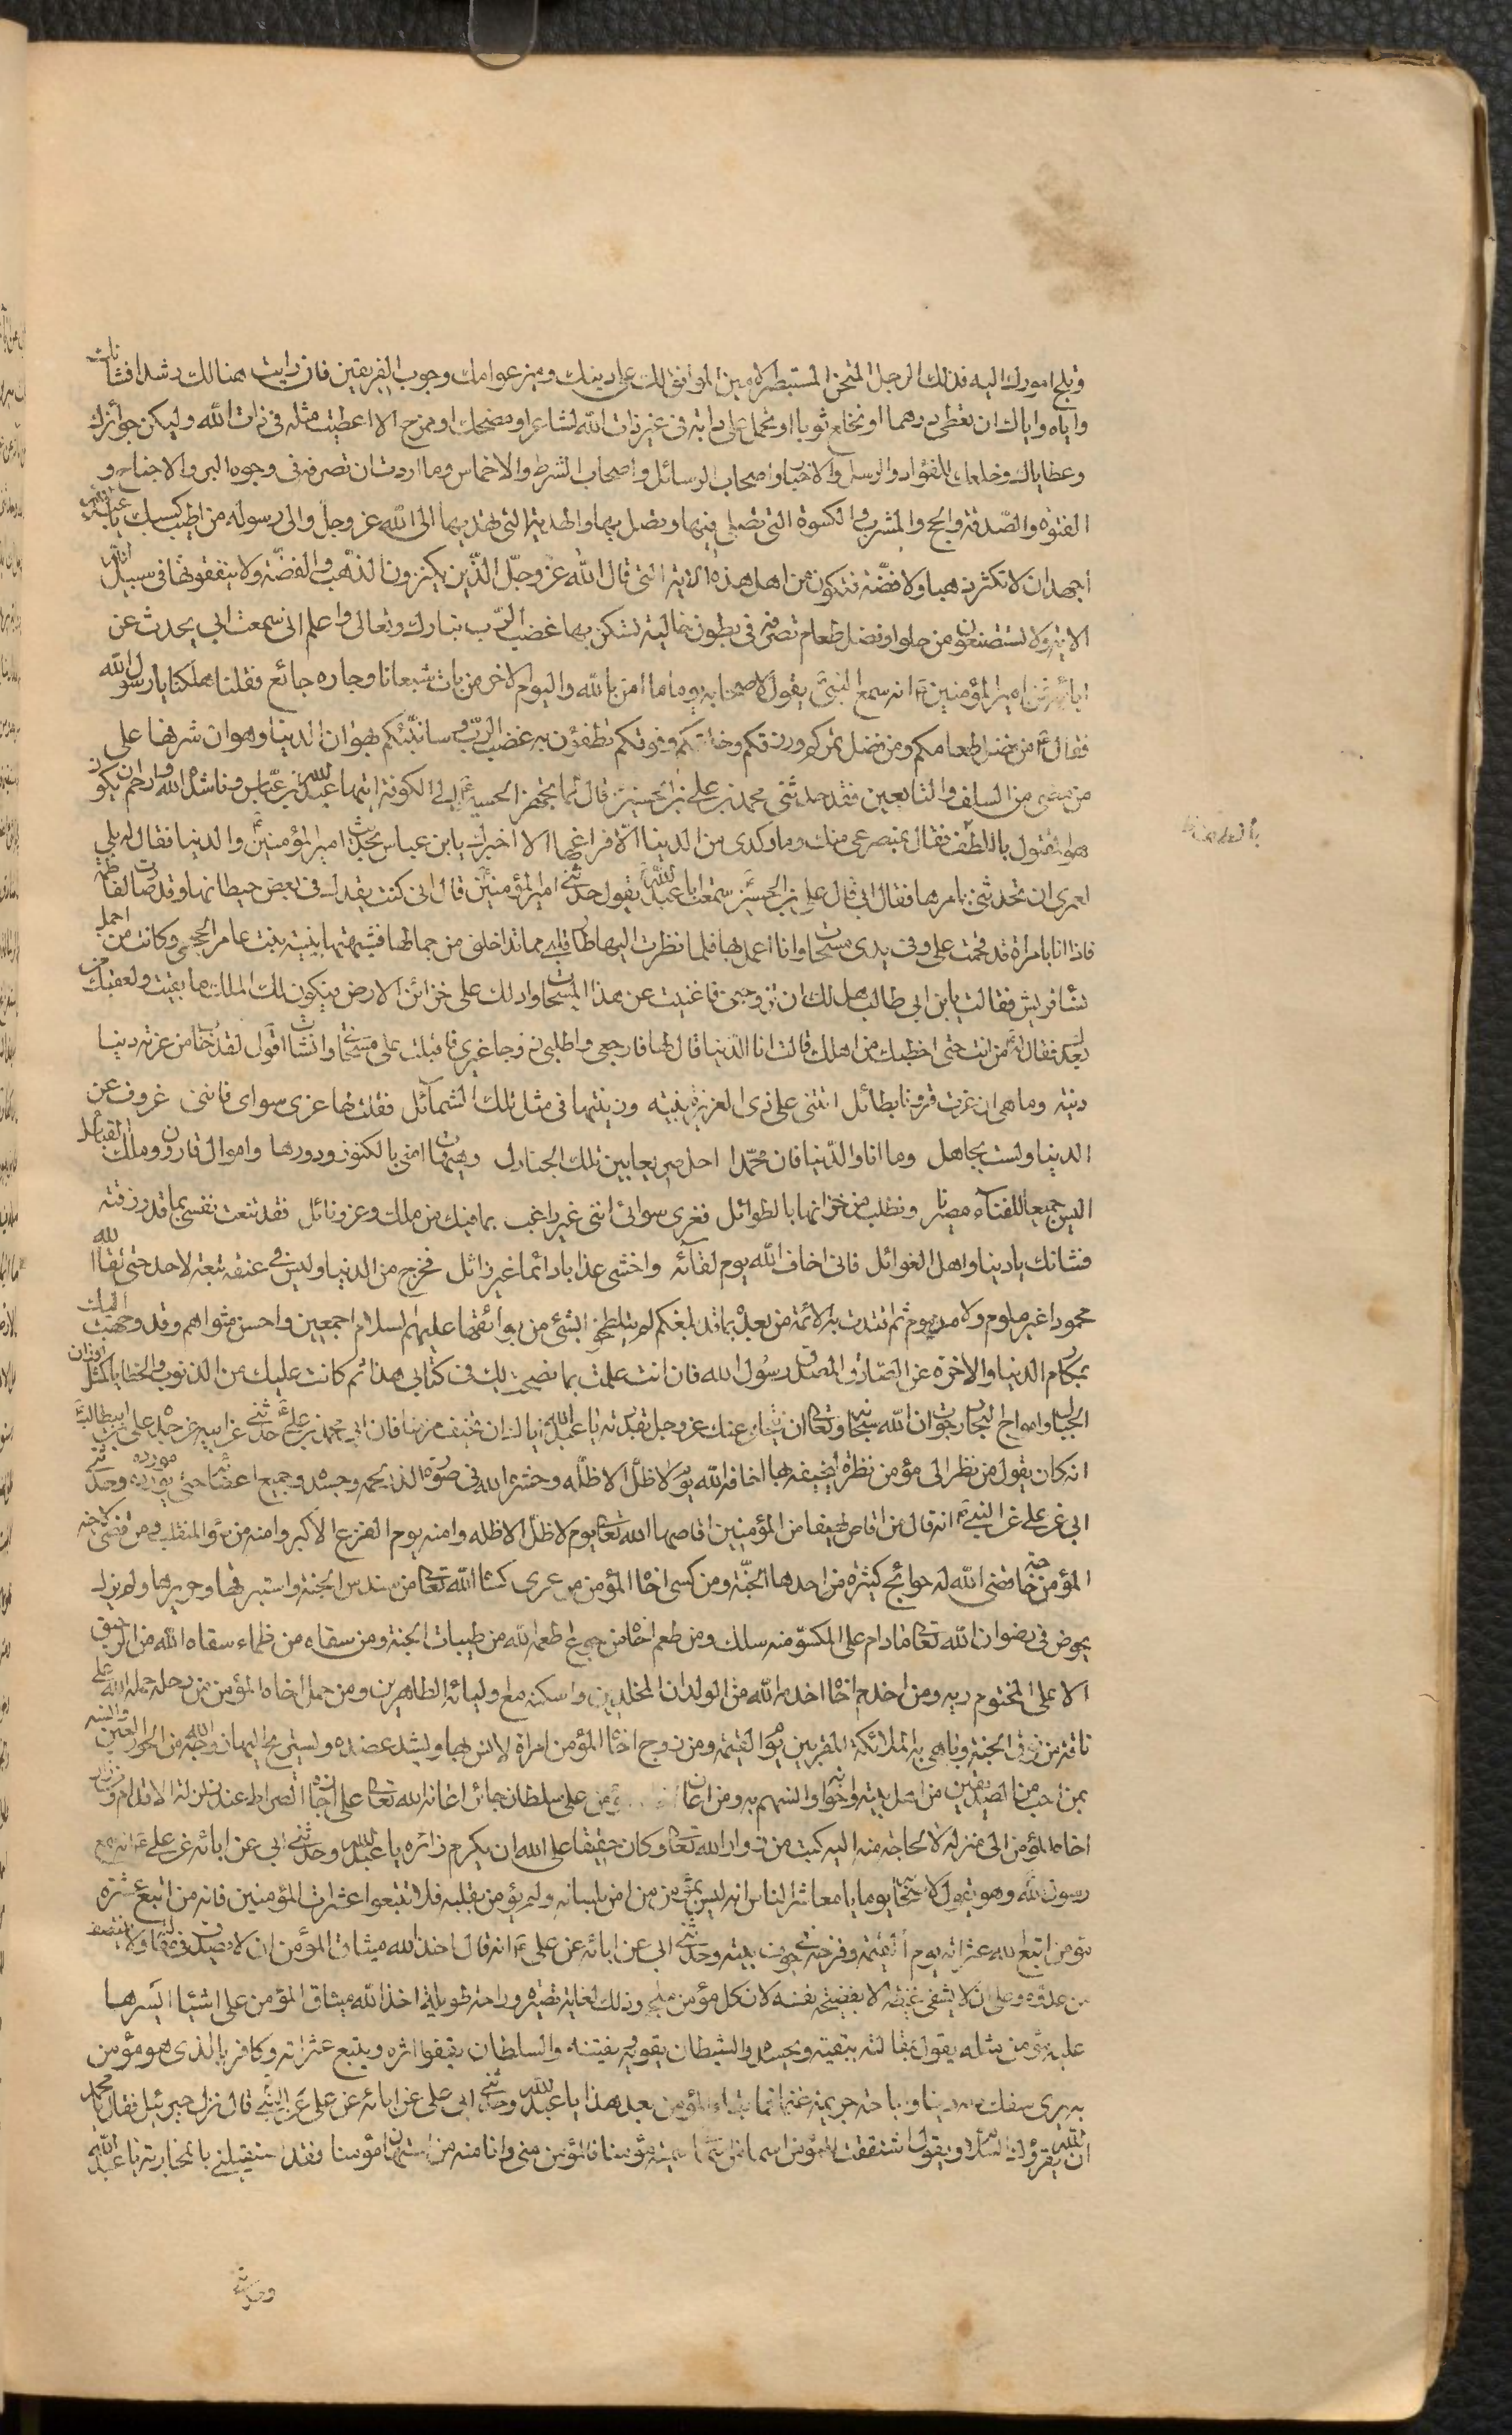 وتلج امورك اليه فذلك الرجل الممتحن المستبصر الامين الموافق لك على دينك وميز عوامك وجرب الفريقين فان رايت هنالك رشدا فشانك
واياه واياك ان تعطى درهما او تخلع ثوبا او تحمل على دابة فى غير ذات الله لشاعر او مضحك او ممزح الا اعطيت مثله فى ذات الله وليكن جوائزك
وعطاياك وخلعك للقواد والرسل والاحفاد واصحاب الرسائل واصحاب الشرط والاخماس وما اردت ان تصرفه فى وجوه البر والاجناح و
الفتوة والصدقة والحج والمشرب والكسوة التى تصلى فيها وتصل بها والهدية التى تهديها الى الله عز وجل والى رسوله من اطيب كسبك يا عبدالله
اجهد ان لا تكثر ذهبا ولا فضة فتكون من اهل هذه الاية التى قال الله عز وجل الذين يكنزون الذهب والفضة ولا ينفقونها فى سبيل الله
الاية ولا تستصغرن من حلو او فضل طعام تصرفه فى بطون خالية تسكن بها غضب الرب تبارك وتعالى واعلم انى سمعت ابي يحدث عن
ابائه عن امير المؤمنين ع انه سمع النبى ص يقول لاصحابه يوما ما امن بالله واليوم الاخر من بات شبعانا وجاره جائع فقلنا هلكنا يا رسول الله
فقال ع من فضل طعامكم ومن فضل تمركم ورزقكم وخلقكم وخرقكم تطفؤن به غضب الرب وسانبئكم بهوان الدنيا وهوان شرفها على
من مضى من السلف والتابعين فقد حدثنى محمد بن على بن الحسين قال لما تجهز الحسين ع الى الكوفة اتيها عبدالله بن عباس فناشده الله والرحم ان يكون
هو المقتول بالطف فقال بمصرعى منك وما وكدى من الدنيا الا فراغها الا اخبرك يابن عباس بحديث امير المؤمنين ع والدنيا فقال له بلى
لعمرى ان تحدثنى بامرها فقال ابى قال على بن الحسين ع سمعت ابا عبدالله ع يقول حدثنى امير المؤمنين ع قال انى كنت بفدك فى بعض حيطانها وقد صارت لفاطمة
فاذا انا بامراة قد قحمت على وفى يدى مسحات وانا اعمل بها فلما نظرت اليها طار قلبى مما تداخلنى من جمالها فشبهتها ببثينة بنت عامر الجمحى وكانت من اجمل
نساء قريش فقالت يابن ابى طالب هل لك ان تزوجنى فاغنيك عن هذا المسحات وادلك على خزائن الارض فيكون لك الملك ما بقيت ولعقبك من
بعدك فقال لها من انت حتى اخطبك من اهلك قالت انا الدنيا قال لها فارجعى واطلبى زوجا غيرى فاقبلت على مسحاتى وانشات اقول لقد خاب من غرته دنيا
دنية وما هى ان غرت قرونا بطائل اتتنى على زى العزيز بثينة وزينتها فى مثل تلك الشمائل فقلت لها غرى سواى فاننى عزوف عن
الدنيا ولست بجاهل وما انا والدنيا فان محمدا احل صريعا بين تلك الجنادل وهبها اتتنى بالكنوز ودورها واموال قارون وملك القبائل
اليس جميعا للفناء مصيرنا وتطلب من خزانها بالطوائل فغرى سوائى اننى غير راغب بما فيك من ملك وعز ونائل فقد قنعت نفسى بما قد رزقته
فشانك يا دنيا واهل الغوائل فانى اخاف الله يوم لقائه واخشى عذابا دائما غير زائل فخرج من الدنيا وليس فى عنقه تبعة لاحد حتى لقا الله
محمودا غير ملوم ولا مذموم ثم اقتدت به الائمة من بعده بما قد بلغكم لم يتلطخوا بشئ من بوائقها عليهم السلام اجمعين واحسن مثواهم وقد وجهت اليك
بمكارم الدنيا والاخرة عن الصادق المصدق رسول الله فان انت عملت بما نصحت لك فى كتابى هذا ثم كانت عليك من الذنوب والخطايا كمثل اوزان
الجبال وامواج البحار رجوت ان الله سبحانه وتعالى ان يتجاوز عنك عز وجل بقدرته يا عبدالله اياك ان تخيف مؤمنا فان ابى محمد بن على ع حدثنى عن ابيه عن جده على بن ابيطالب ع
انه كان يقول من نظر الى مؤمن نظرة ليخيفه بها اخافه الله يوم لا ظل الا ظله وحشره الله فى صورة الذر لحمه وجسده وجميع اعضائه حتى يورده مورده وحدثنى
ابى عن على عن النبى ص انه قال من اغاث لهيفا من المؤمنين اغاثه الله تعالى يوم لا ظل الا ظله وامنه يوم الفزع الاكبر وامنه من سوء المنقلب ومن قضى لاخيه
المؤمن حاجة قضى الله له حوائج كثيرة من احدها الجنة ومن كسى اخاه المؤمن من عرى كساه الله تعالى من سندس الجنة واستبرقها وحريرها ولم يزل
يخوض فى رضوان الله تعالى ما دام على المكسو منه سلك ومن طعم اخاه من جوع اطعمه الله من طيبات الجنة ومن سقاه من ظماء سقاه الله من الرحيق
الاعلى المختوم ريه ومن اخدم اخاه اخدمه الله من الولدان المخلدين واسكنه مع اوليائه الطاهرين ومن حمل اخاه المؤمن من رحله حمله الله على
ناقة من نوق الجنة وباهى به الملائكة المقربين يوم القيمة ومن زوج اخاه المؤمن امراة يانس بها ويشد عضده ويستريح اليها زوجه الله من الحور العين وآنسه
بمن احب من الصديقين من اهل بيته واخوانه وآنسهم به ومن اعان على سلطان جائر اعانه الله تعالى على اجازة الصراط عند زلزلة الاقدام ومن زار
اخاه المؤمن الى منزله لا لحاجة منه اليه كتب من زوار الله تعالى وكان حقيقا على الله ان يكرم زائره يا عبدالله وحدثنى ابى عن ابائه عن على ع انه سمع
رسول الله وهو يقول لاصحابه يوما يا معاشر الناس انه ليس بمؤمن من امن بلسانه ولم يؤمن بقلبه فلا تتبعوا عثرات المؤمنين فانه من اتبع عثرة
مؤمن اتبع الله عثراته يوم القيمة وفضحه فى جوف بيته وحدثنى ابى عن ابائه عن على ع انه قال اخذ الله ميثاق المؤمن ان لا يصدق فى مقالته ولا ينتصف
من عدوه وعلى ان لا يشفى غيظه الا بفضيحة نفسه لان كل مؤمن ملجم وذلك لغاية قصيرة وراحة طويلة اخذ الله ميثاق المؤمن على اشياء ايسرها
عليه مؤمن مثله يقول بمقالته يبغيه ويحسده والشيطان يغويه ويفتنه والسلطان يقفوا اثره ويتبع عثراته وكافر بالذى هو مؤمن
به يرى سفك دمه دينا واباحة حريمه غنما فما بقاء المؤمن بعد هذا يا عبدالله وحدثنى ابى على عن ابائه عن على ع عن النبى ص قال نزل جبرئيل فقال يا محمد
ان الله يقرؤك السلام ويقول اشتققت للمؤمن اسما من اسمائى سميته مؤمنا فالمؤمن منى وانا منه من استهان مؤمنا فقد استقبلنى بالمحاربة يا عبدالله
وحدثنى